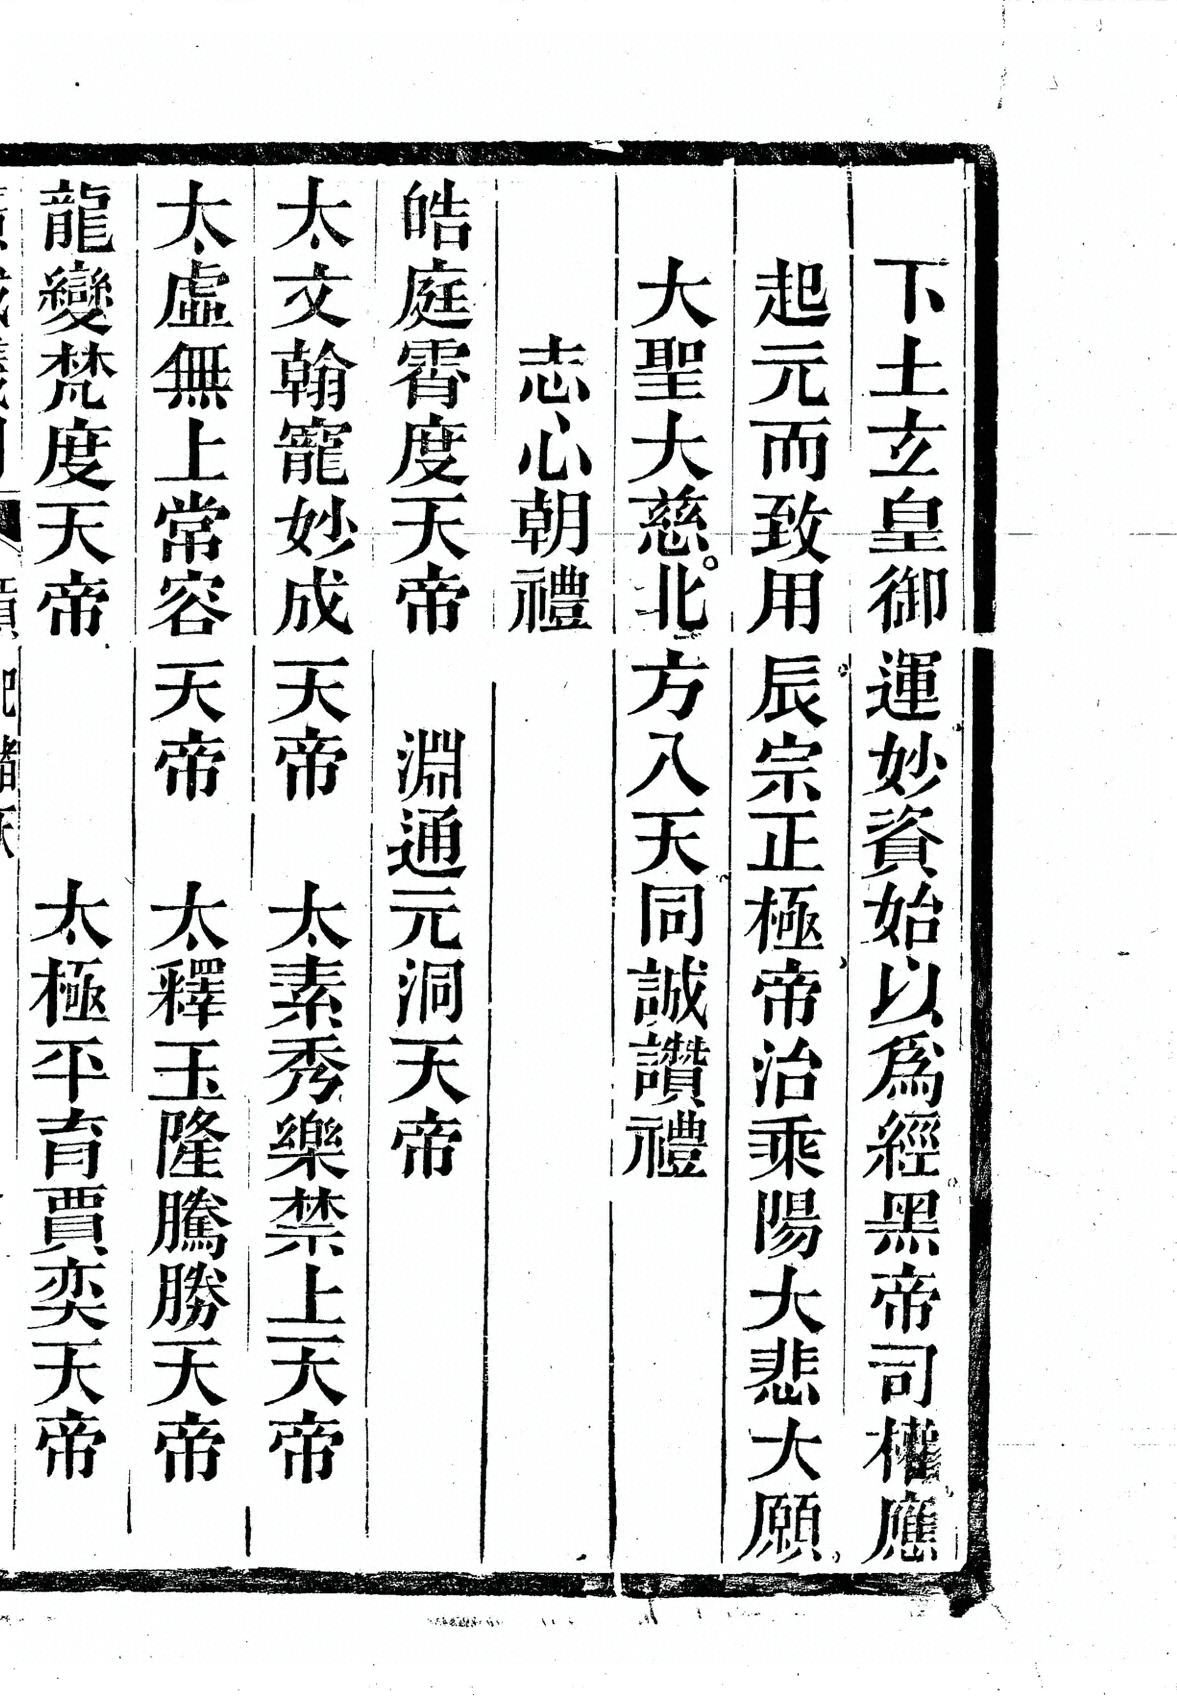 下土立皇御運妙資始以為經黑帝司權應
起元而致用辰宗正極帝治乘陽大悲大願
大聖大慈。北方八天同誠讚禮
志心朝禮
皓庭霄度天帝　淵通元洞天帝
太文翰寵妙成天帝　太素秀樂禁上天帝
太虛無上常容天帝　太釋玉隆騰勝天帝
龍變梵度天帝　太極平育賈奕天帝